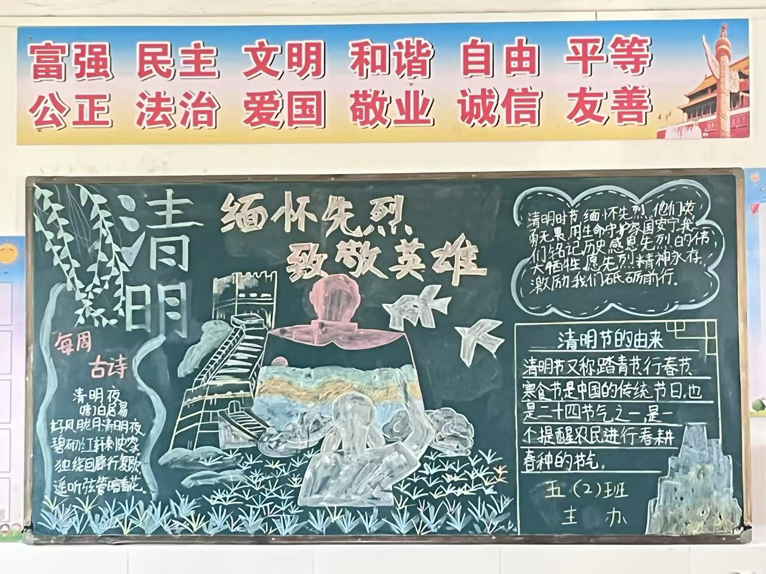 富强 民主 文明 和谐 自由 平等
公正 法治 爱国 敬业 诚信 友善
清明
缅怀先烈
致敬英雄
每周
古诗
清明夜
唐白居易
好风胧月清明夜
碧砌红轩刺史家
独绕回廊行复歇
遥听弦管暗看花
清明时节,缅怀先烈,他们英
勇无畏,用生命守护家国安宁,我
们铭记历史,感恩先烈的伟
大牺牲,愿先烈精神永存,
激励我们砥砺前行。
清明节的由来
清明节又称踏青节,行春节
寒食节是中国的传统节日,也
是二十四节气之一,是一
个提醒农民进行春耕
春种的节气。
五(2)班
主办